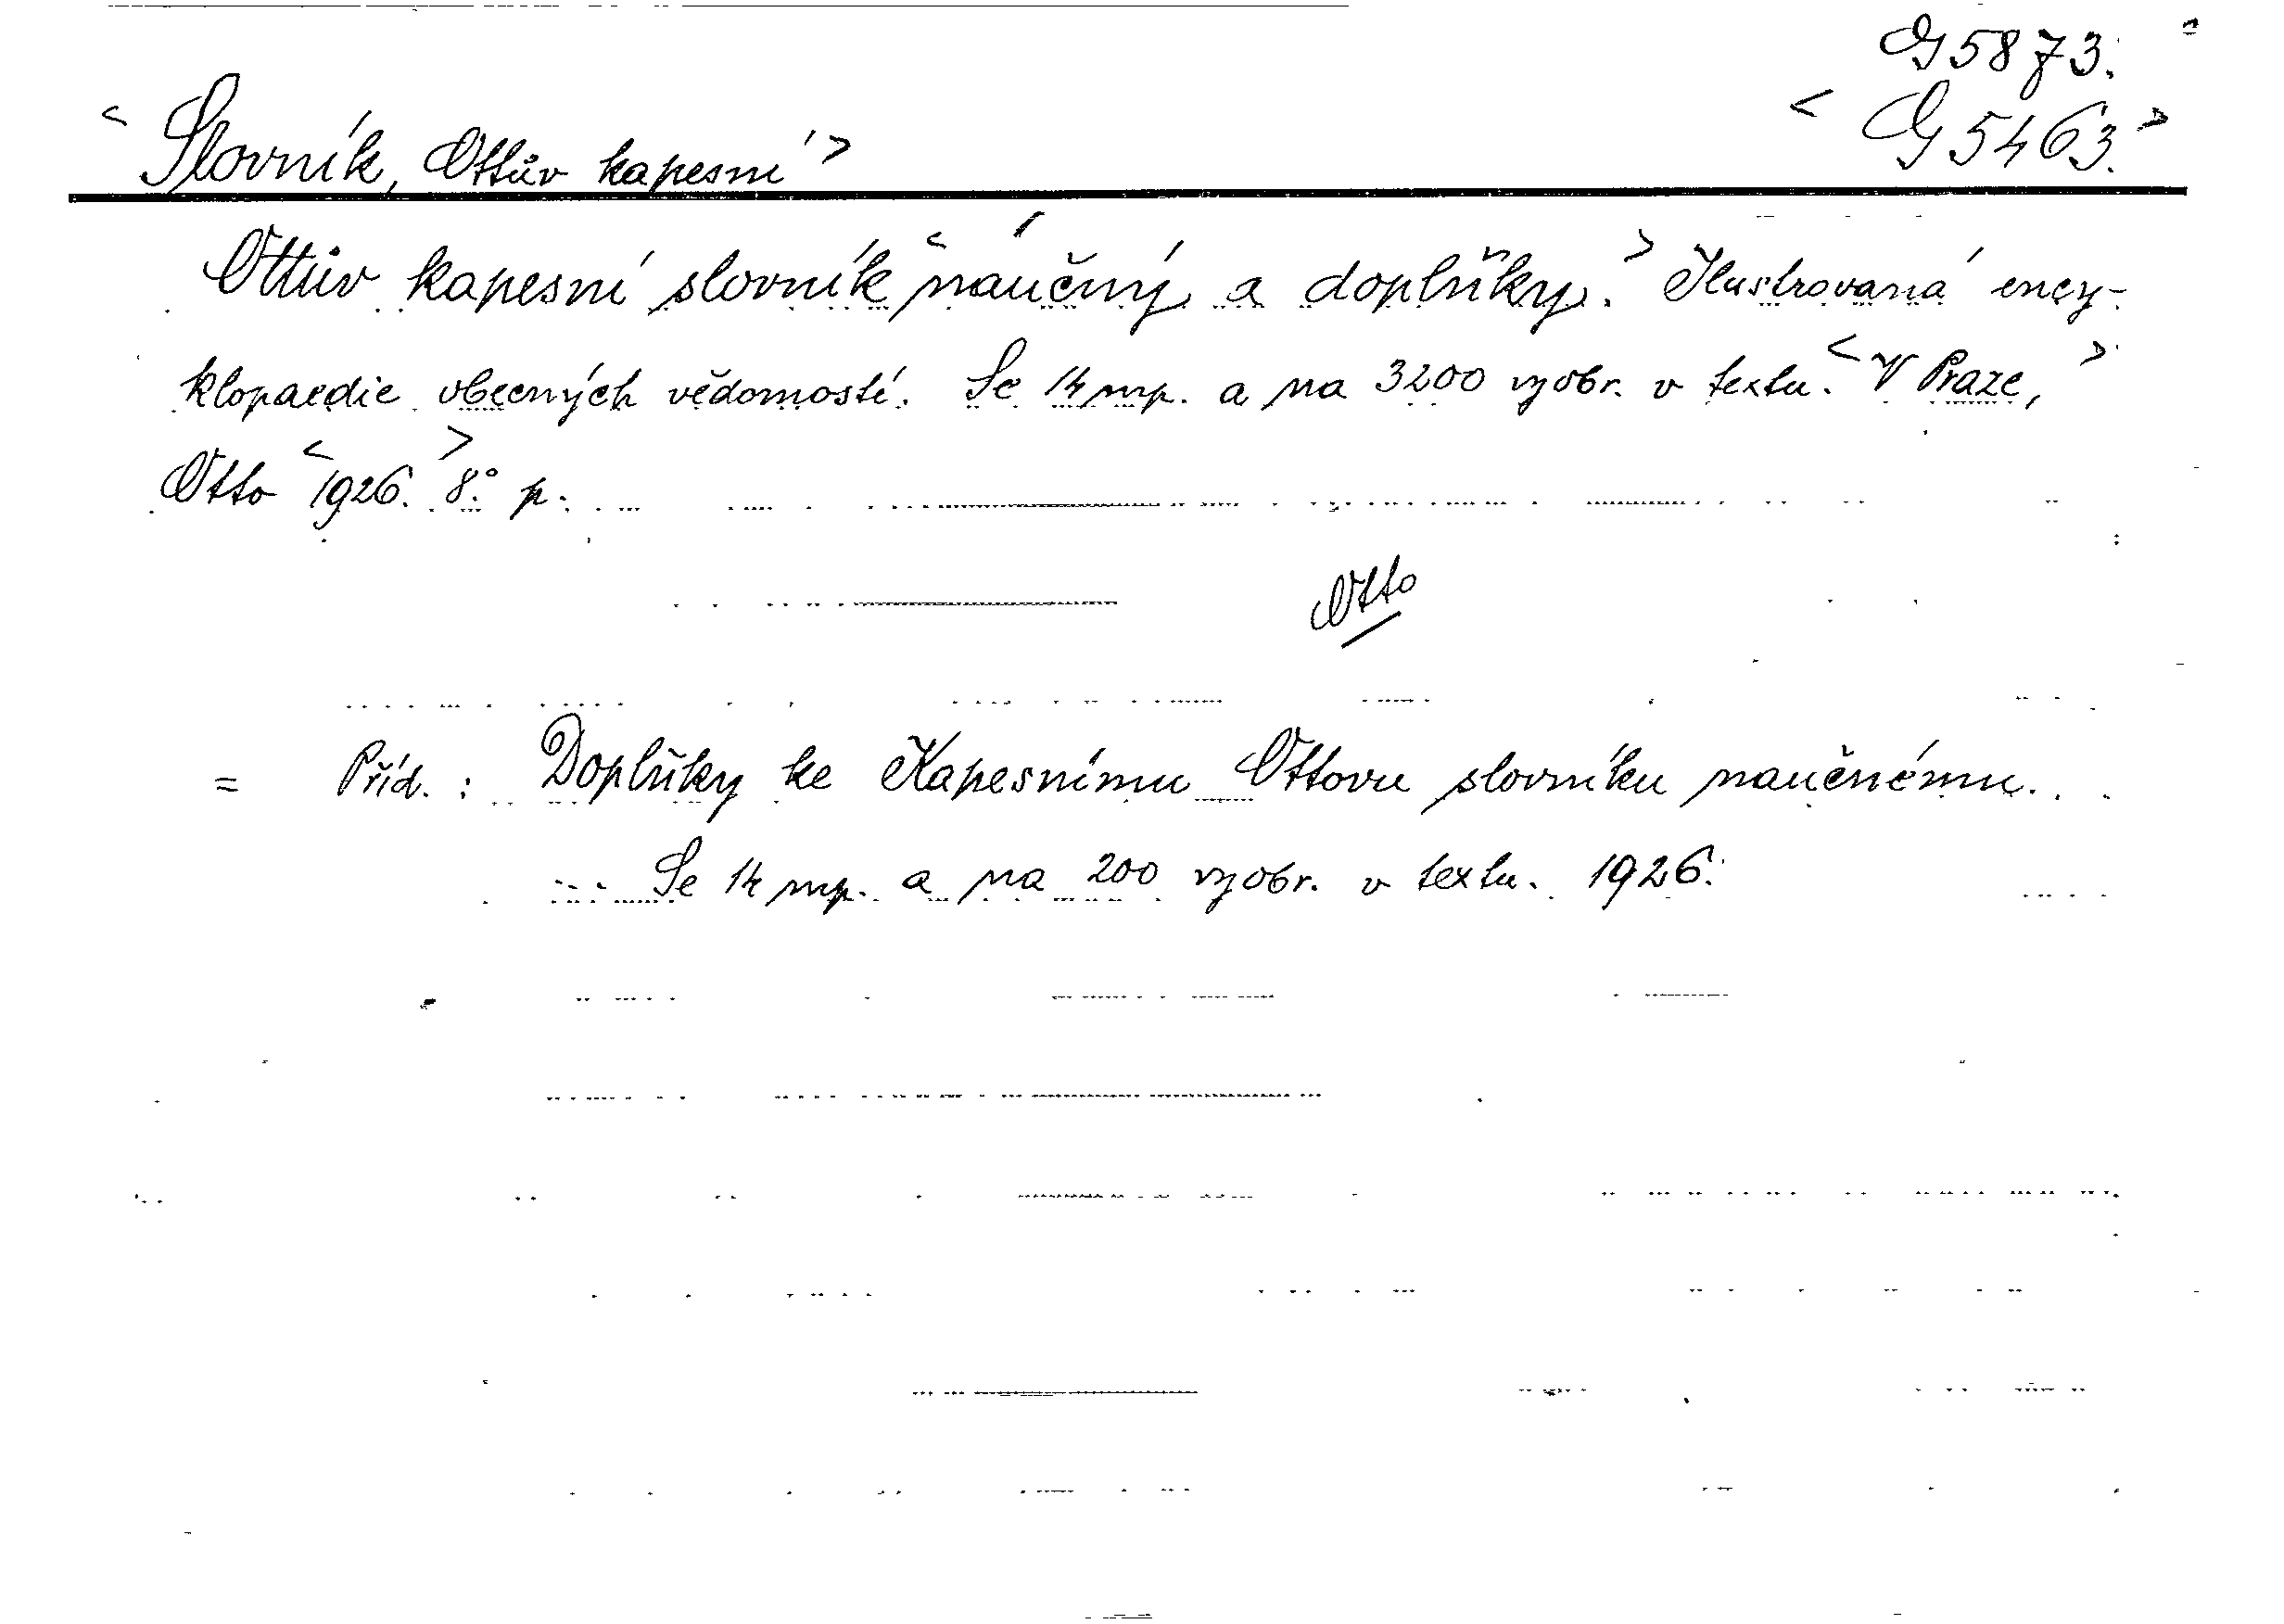 G 5873.
< Slovník, Ottův kapesní >
< G 5463. >
Ottův kapesní slovník < naučný a doplňky. > Ilustrovaná ency-
klopaedie obecných vědomostí. Se 14 mp. a na 3200 vyobr. v textu. < V Praze, >
Otto < 1926. > 8.° p.
Otto
= Příd. : Doplňky ke Kapesnímu Ottovu slovníku naučnému.
Se 14 mp. a na 200 vyobr. v textu. 1926.